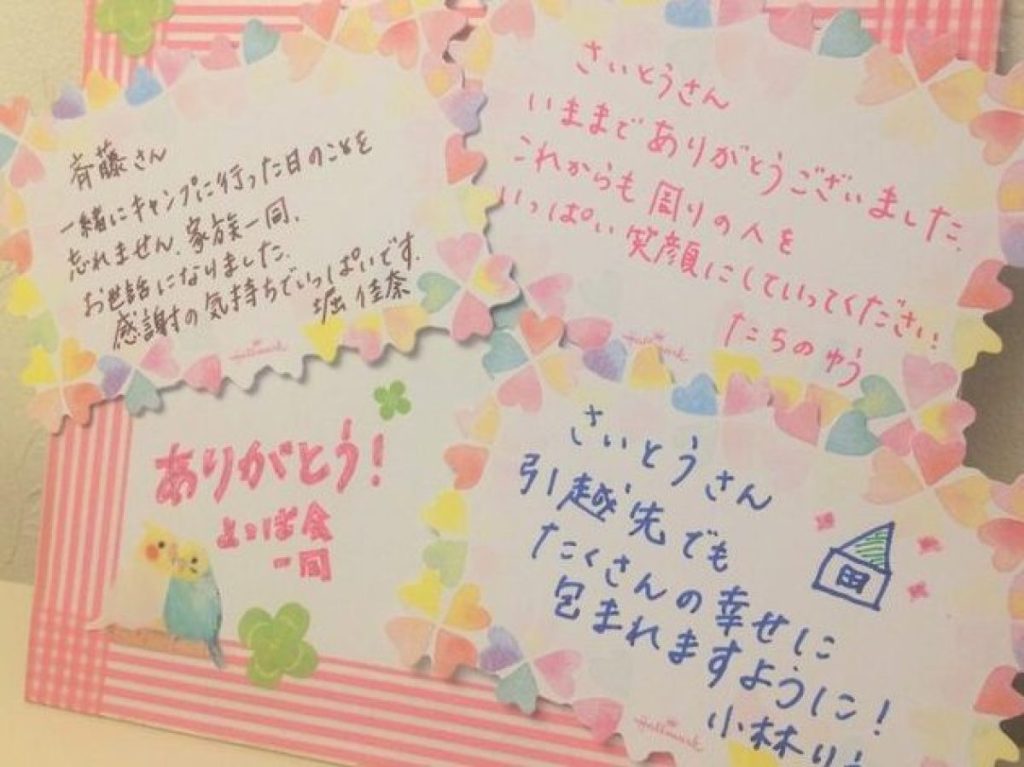 斉藤さん
一緒にキャンプに行った日のことを
忘れません。家族一同、
お世話になりました。
感謝の気持ちでいっぱいです。
堀 佳奈
Hallmark
さいとうさん
いままでありがとうございました。
これからも周りの人を
いっぱい笑顔にしていってください!
たちの ゆう
Hallmark
ありがとう!
よつば会
一同
さいとうさん
引越先でも
たくさんの幸せに
包まれますように!
小林
Hallmark